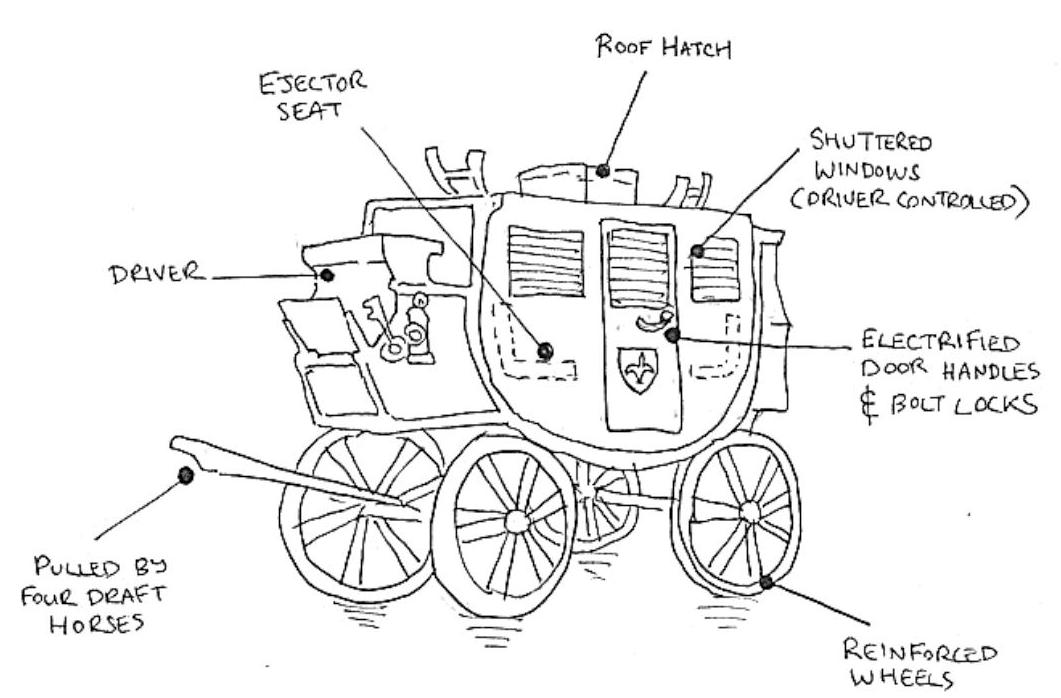 ROOF HATCH
EJECTOR
SEAT
SHUTTERED
WINDOWS
(DRIVER CONTROLLED)
DRIVER
ELECTRIFIED
DOOR HANDLES
& BOLT LOCKS
PULLED BY
FOUR DRAFT
HORSES
REINFORCED
WHEELS